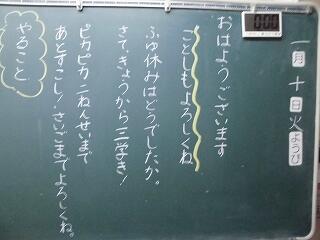 一月十日火ようび
おはようございます
ことしもよろしくね
ふゆ休みはどうでしたか。
さて、きょうから三学き！
ピカピカ二ねんせいまで
あとすこし！さいごまでよろしくね。
やること